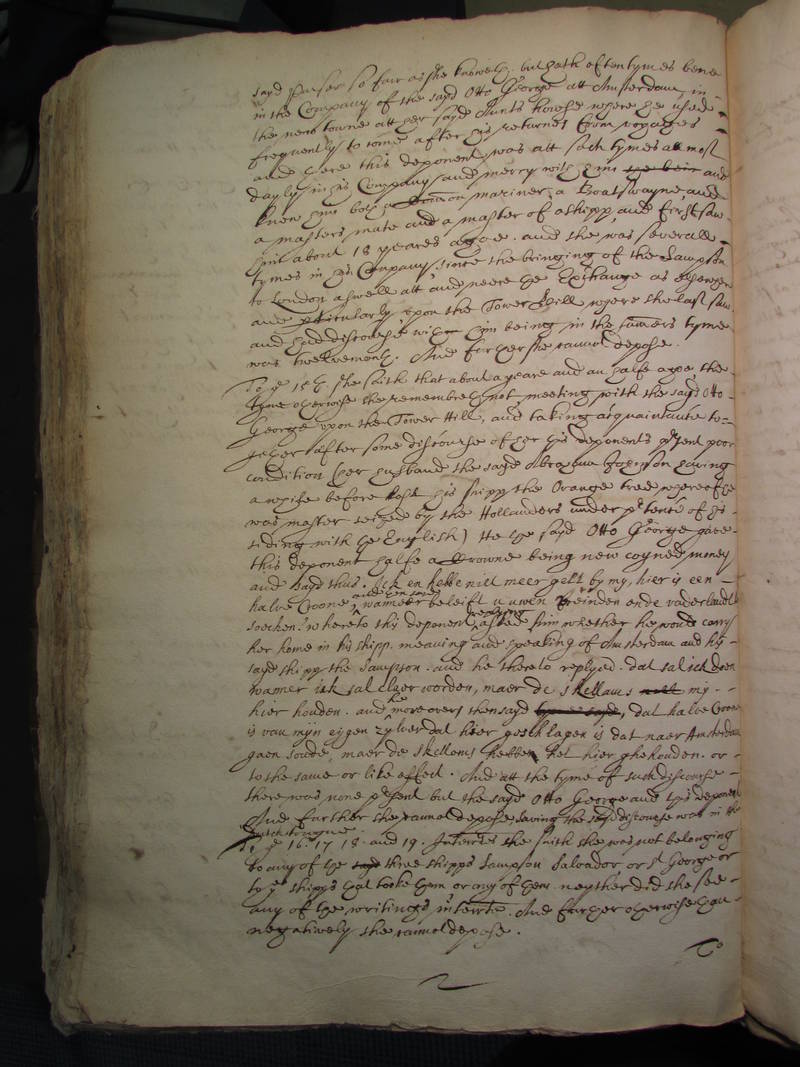 sayd Purser so farr as she knoweth but hath oftentymes bene
in the Company of the sayd Otto George att Amsterdam in
the new towne att her sayd Aunts howse where he used
frequently to come after his returnes from voyages
and there this deponent was att such tymes almost
dayly in his Company and merry with him and
knew him both a Common mariner, a Boatswayne, and
a masters mate and a master of a shipp, and first saw
him about 18 yeares agoe. and she was severall
tymes in his Company since the bringing of the Sampson
to London aswell att and neere the Exchange as elswhere
and particularly upon the Tower Hill where she last saw
and had discourse with him being in the sumers tyme
was twelvemonth. And further she cannot depose.
To ye 15th she saith that about a yeare and an halfe agoe, the
tyme otherwise she remembreth not meeting with the sayd Otto
George upon the Tower Hill, and taking acquaintance to=
gether after some discourse of her this deponents present poor
condition (her husband the sayd Abraham Johnson having
a while before lost his shipp the Orange tree whereof he
was master seized by the Hollanders under pretence of his
siding with the English) He the sayd Otto George gave
this deponent halfe a Crowne being new coyned money
and sayd thus. Ick en hebbe niet meer gelt by my, hier is een
halve Croone wameer beleift u uwen vreinden ende vaderlandt
soecken. whereto this deponent replying asked him whether he would carry
her home in his shipp. meaning and speaking of Amsterdam and his
sayd shipp the Sampson. and he thereto replyed. dat sal ick doen
wamer ick sal claer worden, maer de skellams my
hier houden. and he moreover then sayd, dat halve Croone
is van mijn eigen zylver dat hier geschlagen is dat naer Amsterdam
gaen soude, maer de skellams hebben het hier ghehouden. or
to the same or like effect. And att the tyme of such discourse
there was none present but the sayd Otto George and this deponent
And further she cannot depose saving the sayd discourse was in the
Dutch tongue.
To ye 16. 17 18. and 19. Interries she saith she was not belonging
to any of the three shipps Sampson Salvador, or St George or
to ye shipps that tooke them or any of them neyther did she see
any of the writings interrte. And further otherwise than
negatively she cannot depose.
To